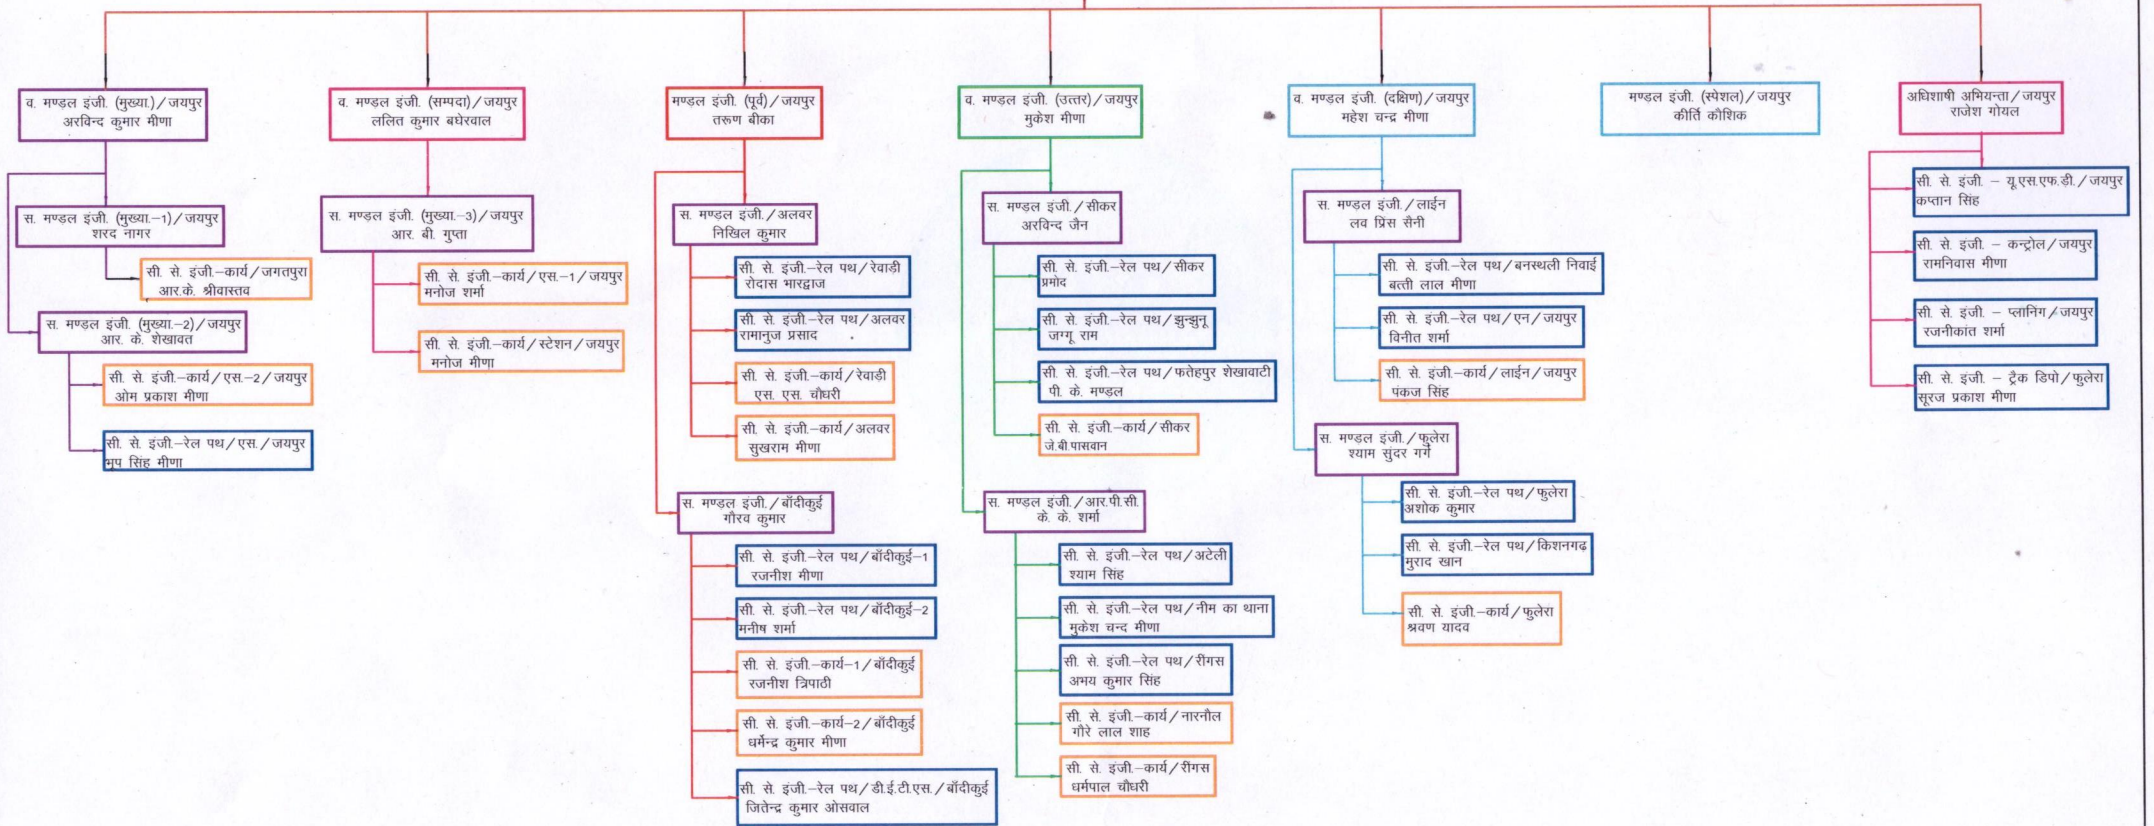 व. मण्डल इंजी. (मुख्या.)/जयपुर
अरविन्द कुमार मीणा
स. मण्डल इंजी. (मुख्या.-1)/जयपुर
शरद नागर
सी. से. इंजी.-कार्य/जगतपुरा
आर.के. श्रीवास्तव
स. मण्डल इंजी. (मुख्या.-2)/जयपुर
आर. के. शेखावत
सी. से. इंजी.-कार्य/एस.-2/जयपुर
ओम प्रकाश मीणा
सी. से. इंजी.-रेल पथ/एस./जयपुर
भूप सिंह मीणा
व. मण्डल इंजी. (सम्पदा)/जयपुर
ललित कुमार बघेरवाल
स. मण्डल इंजी. (मुख्या.-3)/जयपुर
आर. बी. गुप्ता
सी. से. इंजी.-कार्य/एस.-1/जयपुर
मनोज शर्मा
सी. से. इंजी.-कार्य/स्टेशन/जयपुर
मनोज मीणा
मण्डल इंजी. (पूर्व)/जयपुर
तरूण बीका
स. मण्डल इंजी./अलवर
निखिल कुमार
सी. से. इंजी.-रेल पथ/रेवाड़ी
रोदास भारद्वाज
सी. से. इंजी.-रेल पथ/अलवर
रामानुज प्रसाद
सी. से. इंजी.-कार्य/रेवाड़ी
एस. एस. चौधरी
सी. से. इंजी.-कार्य/अलवर
सुखराम मीणा
स. मण्डल इंजी./बाँदीकुई
गौरव कुमार
सी. से. इंजी.-रेल पथ/बाँदीकुई-1
रजनीश मीणा
सी. से. इंजी.-रेल पथ/बाँदीकुई-2
मनीष शर्मा
सी. से. इंजी.-कार्य-1/बाँदीकुई
रजनीश त्रिपाठी
सी. से. इंजी.-कार्य-2/बाँदीकुई
धर्मेन्द्र कुमार मीणा
सी. से. इंजी.-रेल पथ/डी.ई.टी.एस./बाँदीकुई
जितेन्द्र कुमार ओसवाल
व. मण्डल इंजी. (उत्तर)/जयपुर
मुकेश मीणा
स. मण्डल इंजी./सीकर
अरविन्द जैन
सी. से. इंजी.-रेल पथ/सीकर
प्रमोद
सी. से. इंजी.-रेल पथ/झुन्झुनू
जग्गू राम
सी. से. इंजी.-रेल पथ/फतेहपुर शेखावाटी
पी. के. मण्डल
सी. से. इंजी.-कार्य/सीकर
जे.बी.पासवान
स. मण्डल इंजी./आर.पी.सी.
के. के. शर्मा
सी. से. इंजी.-रेल पथ/अटेली
श्याम सिंह
सी. से. इंजी.-रेल पथ/नीम का थाना
मुकेश चन्द मीणा
सी. से. इंजी.-रेल पथ/रींगस
अभय कुमार सिंह
सी. से. इंजी.-कार्य/नारनौल
गौरे लाल शाह
सी. से. इंजी.-कार्य/रींगस
धर्मपाल चौधरी
व. मण्डल इंजी. (दक्षिण)/जयपुर
महेश चन्द्र मीणा
स. मण्डल इंजी./लाईन
लव प्रिंस सैनी
सी. से. इंजी.-रेल पथ/बनस्थली निवाई
बत्ती लाल मीणा
सी. से. इंजी.-रेल पथ/एन/जयपुर
विनीत शर्मा
सी. से. इंजी.-कार्य/लाईन/जयपुर
पंकज सिंह
स. मण्डल इंजी./फुलेरा
श्याम सुंदर गर्ग
सी. से. इंजी.-रेल पथ/फुलेरा
अशोक कुमार
सी. से. इंजी.-रेल पथ/किशनगढ़
मुराद खान
सी. से. इंजी.-कार्य/फुलेरा
श्रवण यादव
मण्डल इंजी. (स्पेशल)/जयपुर
कीर्ति कौशिक
अधिशाषी अभियन्ता/जयपुर
राजेश गोयल
सी. से. इंजी. - यू.एस.एफ.डी./जयपुर
कप्तान सिंह
सी. से. इंजी. - कन्ट्रोल/जयपुर
रामनिवास मीणा
सी. से. इंजी. - प्लानिंग/जयपुर
रजनीकांत शर्मा
सी. से. इंजी. - ट्रैक डिपो/फुलेरा
सूरज प्रकाश मीणा